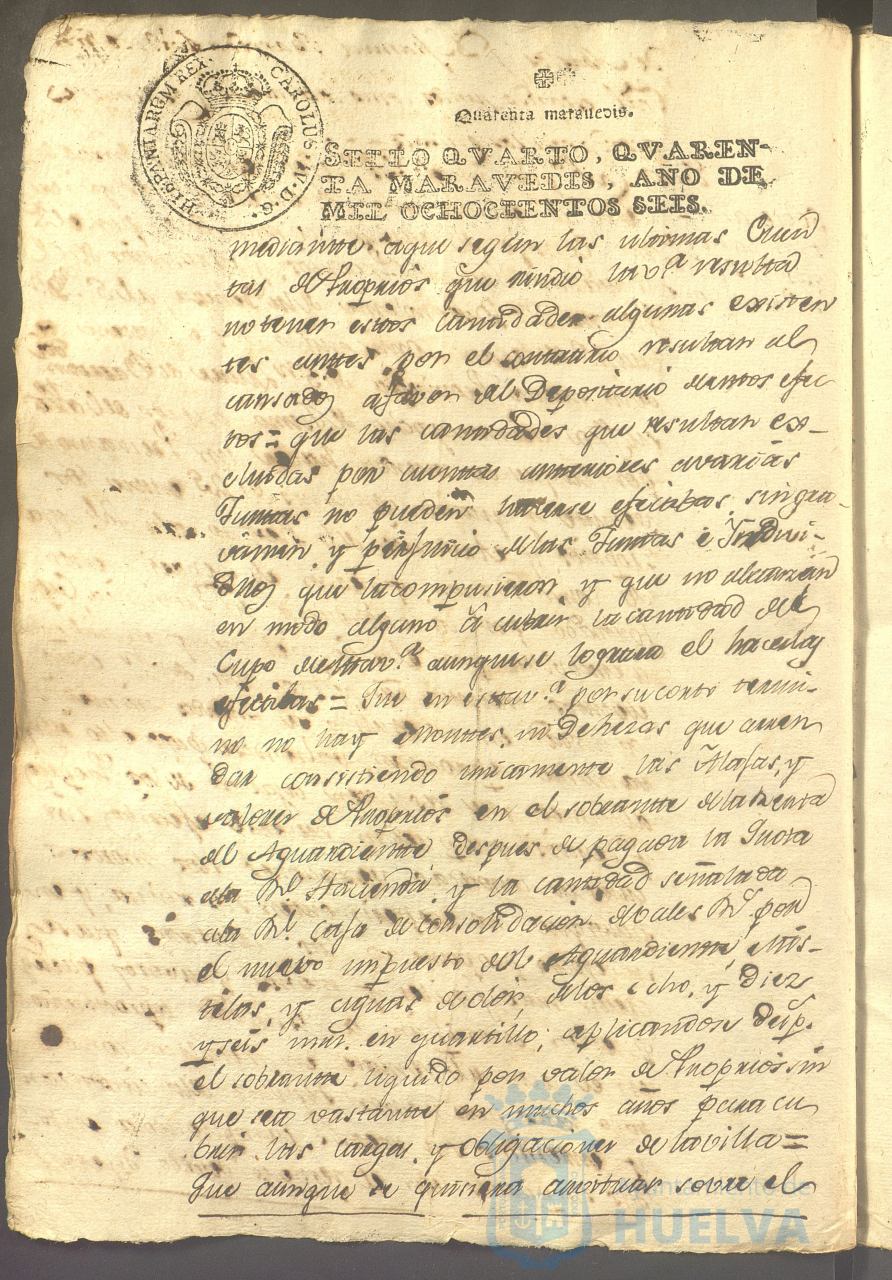 HISPANIARUM REX. CAROLUS IV. D. G.
Quarenta maravedis.
SELLO QVARTO, QVAREN-
TA MARAVEDIS, AÑO DE
MIL OCHOCIENTOS SEIS.
mediante aque segun las ultimas Cuen
tas de Proprios que rindio la v.ª resulta
no tener estos cantidades algunas existen
tes antes por el contrario resultan al
canzados afavor del Depositario destos efec
tos = que las cantidades que resultan ex-
cluidas por cuentas anteriores avarias
Juntas no pueden hacerse efectibas singra-
vamen y perjuicio delas Juntas e Yndivi-
duos que lacompusieron y que no alcanzan
en modo alguno â cubrir lacantidad del
Cupo destav.ª aunquese lograra el hacerlas
efectibas = Que en estav.ª por sucorto termi-
no no hay Montes, ni Dehezas que arren
dar consistiendo unicamente las Alajas, y
valores de Proprios en el sobrante delaRenta
del Aguardiente despues de pagada la Quota
ala Rl. Hacienda y la cantidad señalada
ala Rl. Caja de consolidacion de Vales Rs. por
el nuevo impuesto del Aguardiente, Mis-
telas, y aguas de olor, delos ocho, y Diez
y seis mrs. en quartillo; aplicandose desp.s
el sobrante liquido por valor de Proprios sin
que sea vastante en muchos años para cu
brir las cargas y obligaciones de lavilla =
Que aunque se quisiera arvitrar sobre el
Ayuntamiento de
HUELVA